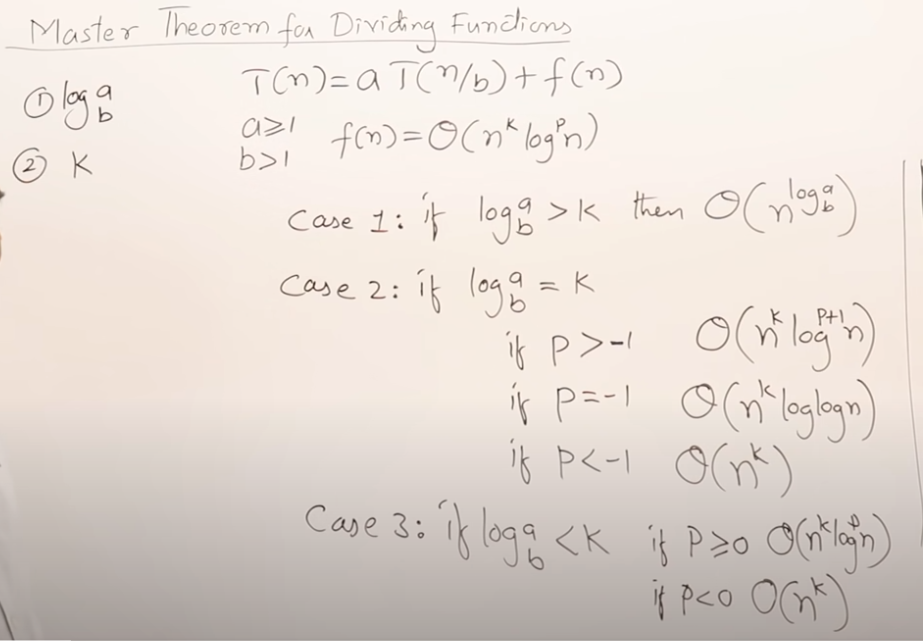 Master Theorem for Dividing Functions
T(n) = a T(n/b) + f(n)
① log_b^a
a ≥ 1
b > 1
f(n) = O(n^k log^p n)
② K
Case 1: if log_b^a > K then O(n^{log_b^a})
Case 2: if log_b^a = K
if P > -1 O(n^k log^{P+1} n)
if P = -1 O(n^k loglogn)
if P < -1 O(n^k)
Case 3: if log_b^a < K if P ≥ 0 O(n^k log^p n)
if P < 0 O(n^k)